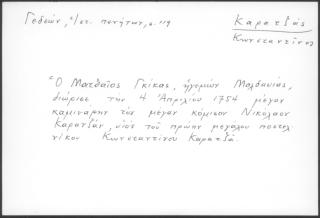 Καρατζᾶς
Κωνσταντῖνος
Γεδεών, ἱστ. πενήτων, σ. 119
Ὁ Ματθαῖος Γκίκας, ἡγεμὼν Μολδαυίας,
διώρισε τὴν 4 Ἀπριλίου 1754 μέγαν
καμινάρην τὸν μέγαν κόμισον Νικόλαον
Καρατζᾶν, υἱὸς τοῦ πρώην μεγάλου ποστελ-
νίκου Κωνσταντίνου Καρατζᾶ.